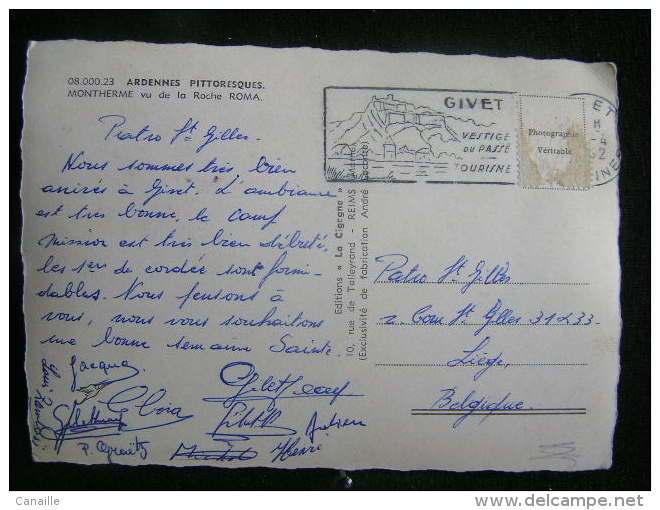 08.000.23 ARDENNES PITTORESQUES.
MONTHERME vu de la Roche ROMA.
Patro St Gilles.
Nous sommes très bien
arrivés à Givet. L'ambiance
est très bonne, le camp
mission est très bien débuté,
les 1er de cordée sont formi-
dables. Nous pensons à
vous, nous vous souhaitons
une bonne semaine Sainte.
Jacques
Henri
GIVET
VESTIGE
DU PASSÉ
TOURISME
Photographie
Véritable
Editions « La Cigogne »
10, rue de Talleyrand - REIMS
(Exclusivité de fabrication André
Patro St Gilles
2 Com St Gilles 31 à 33
Liège,
Belgique.
Canaille
www.delcampe.net